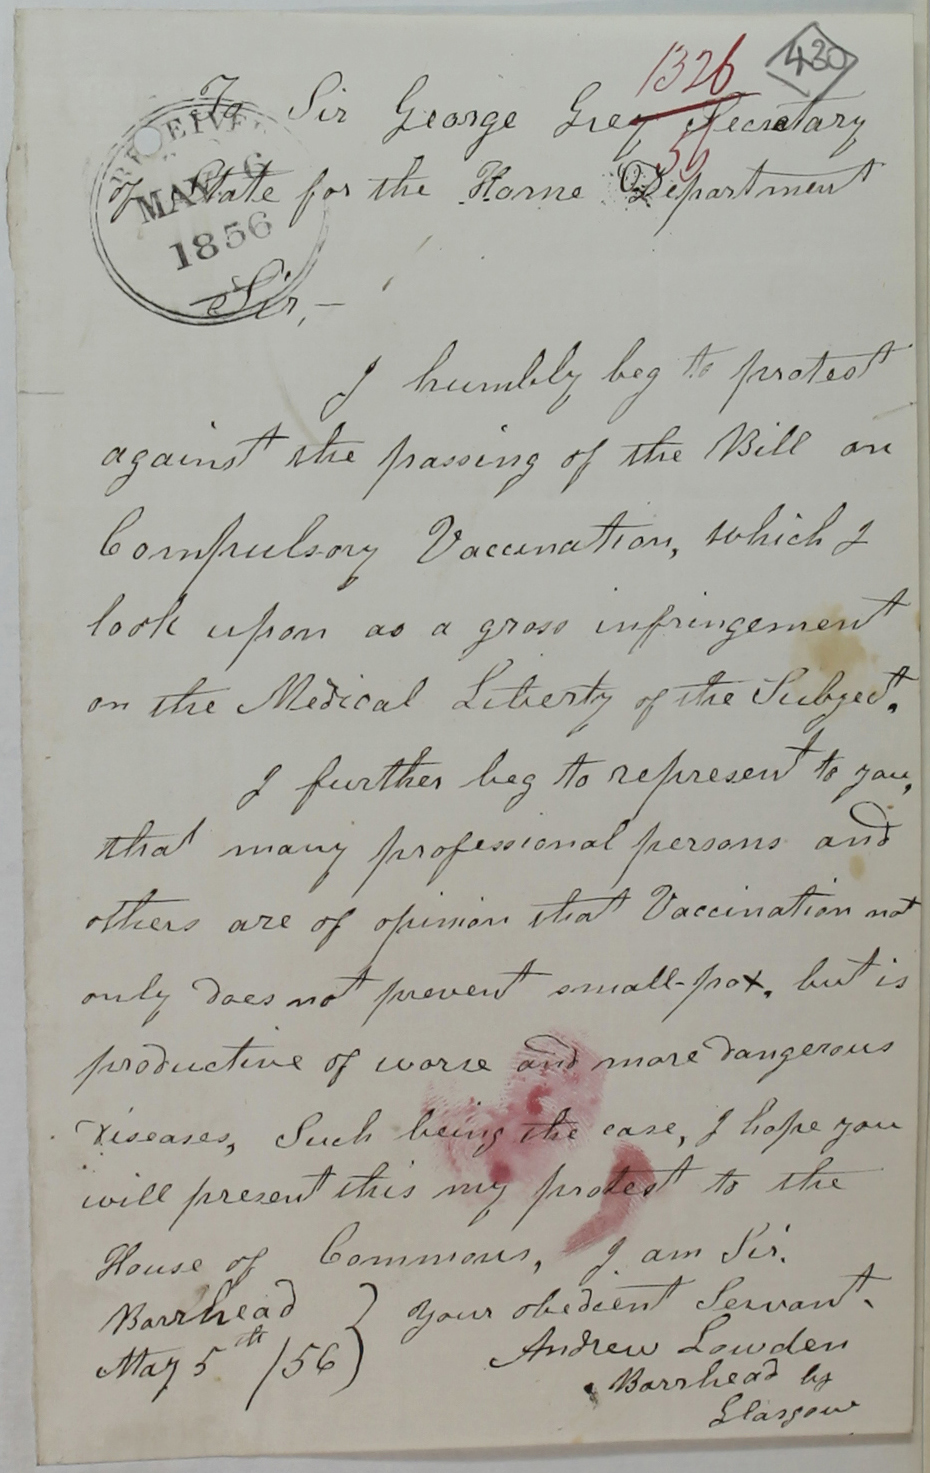 430
1326
56
To Sir George Grey Secretary
of State for the Home Department
RECEIVED
MAY 6
1856
Sir, —
I humbly beg to protest
against the passing of the Bill on
Compulsory Vaccination, which I
look upon as a gross infringement
on the Medical Liberty of the Subject.
I further beg to represent to you,
that many professional persons and
others are of opinion that Vaccination not
only does not prevent small-pox, but is
productive of worse and more dangerous
diseases, Such being the case, I hope you
will present this my protest to the
House of Commons, I am Sir.
Barrhead } Your obedient Servant.
May 5th /56 ) Andrew Lowden
Barrhead by
Glasgow